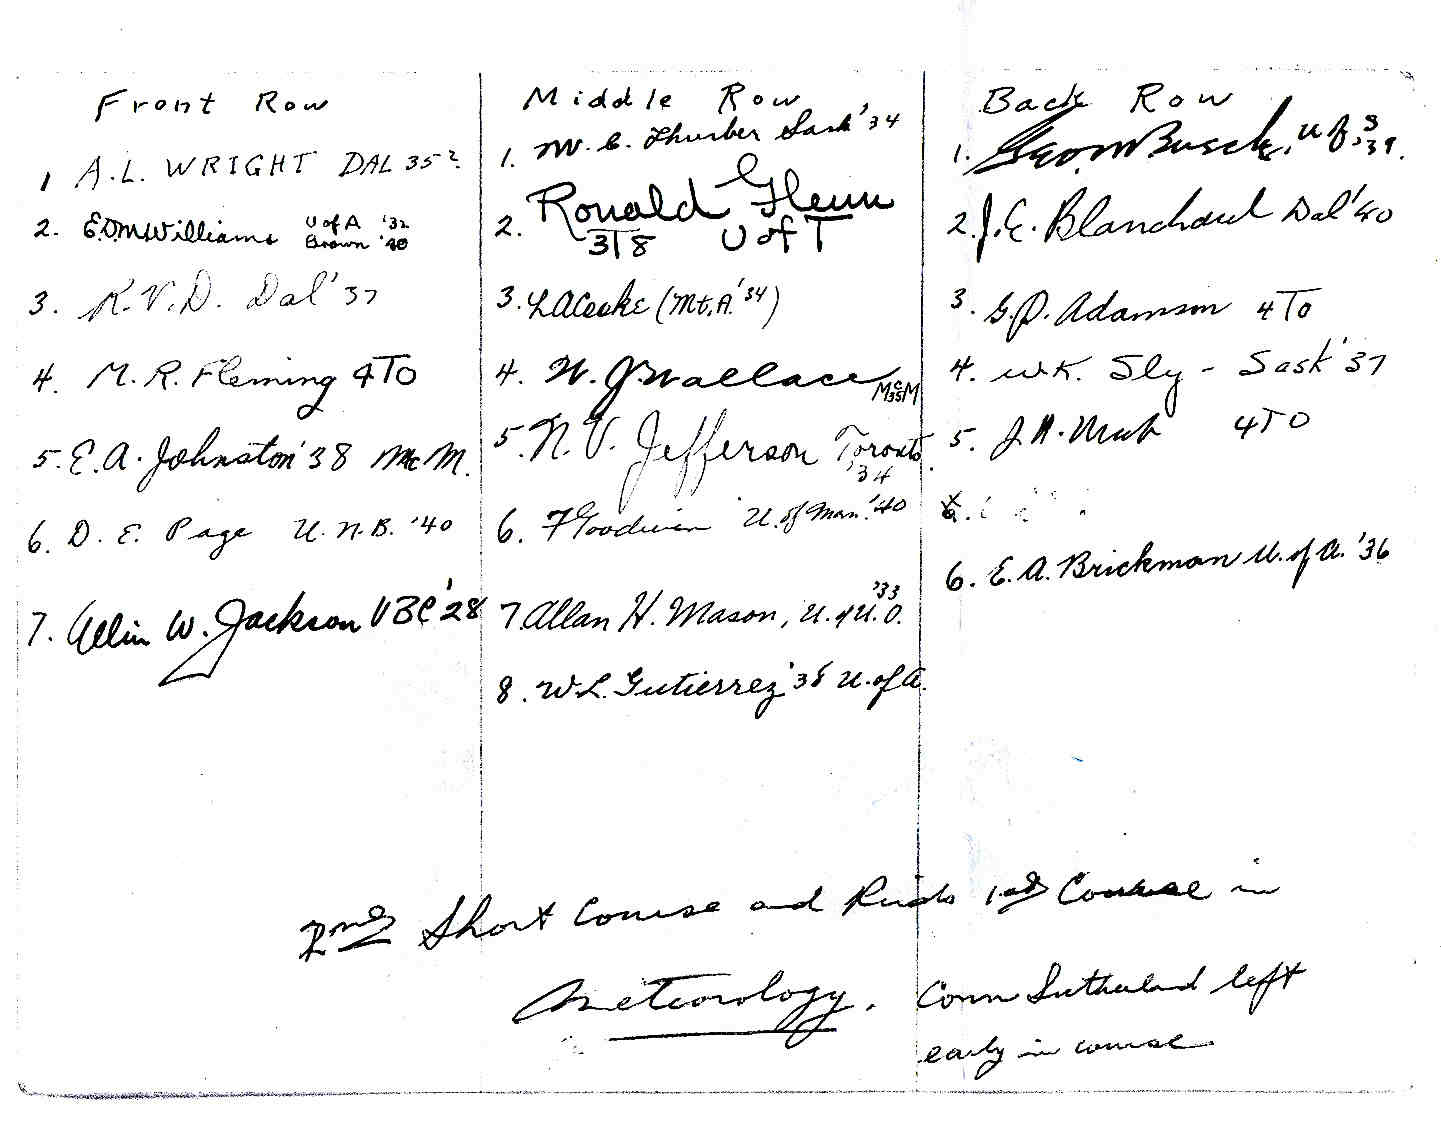 Front Row
1 A.L. WRIGHT DAL 35?
2. E.D.M Williams U of A '32
Brown '40
3. K.V.D. Dal '37
4. M. R. Fleming 4T0
5. E. A. Johnston '38 McM.
6. D. E. Page U.N.B. '40
7. W. Jackson UBC '28
Middle Row
1. M. C. Thurber Sask '34
2. Ronald Glenn
3T8 U of T
3. (Mt.A. '34)
4. W. J. Wallace McM
35
5. N. V. Jefferson Toronto
'34
6. F Goodwin U. of Man. '40
'33
7 Allan H. Mason, U. of W.O.
8. W.L. Gutierrez '38 U. of A.
Back Row
1. Geo. M Busch, U of S
'39.
2. J. E. Blanchard Dal '40
3. G. D. Adamson 4T0
4. W.K. Sly - Sask '37
5. 4T0
6. E. A. Brickman U. of A. '36
2nd Short Course and 1st Course in
Meteorology. Conn Sutherland left
early in course